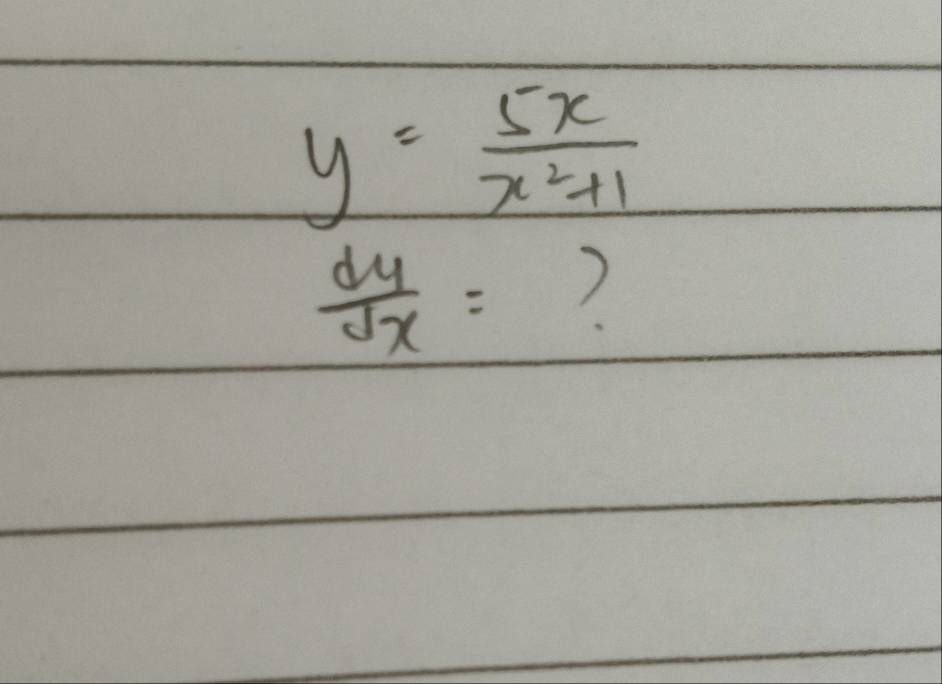 y = 5x/(x²+1)
dy/dx = ?